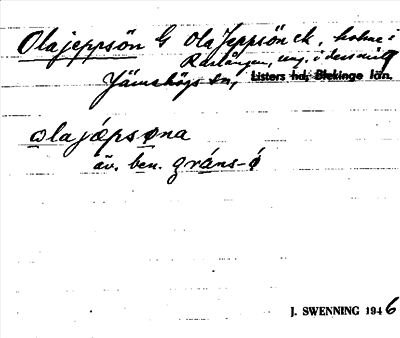 Olajeppsön G Ola Jeppsön ek, holme i
Raslången, ung. i dess mitt
Jämshögs sn, Listers hd, Blekinge län.
olajæpsøna
äv. ben. gräns-ö
J. SWENNING 1946